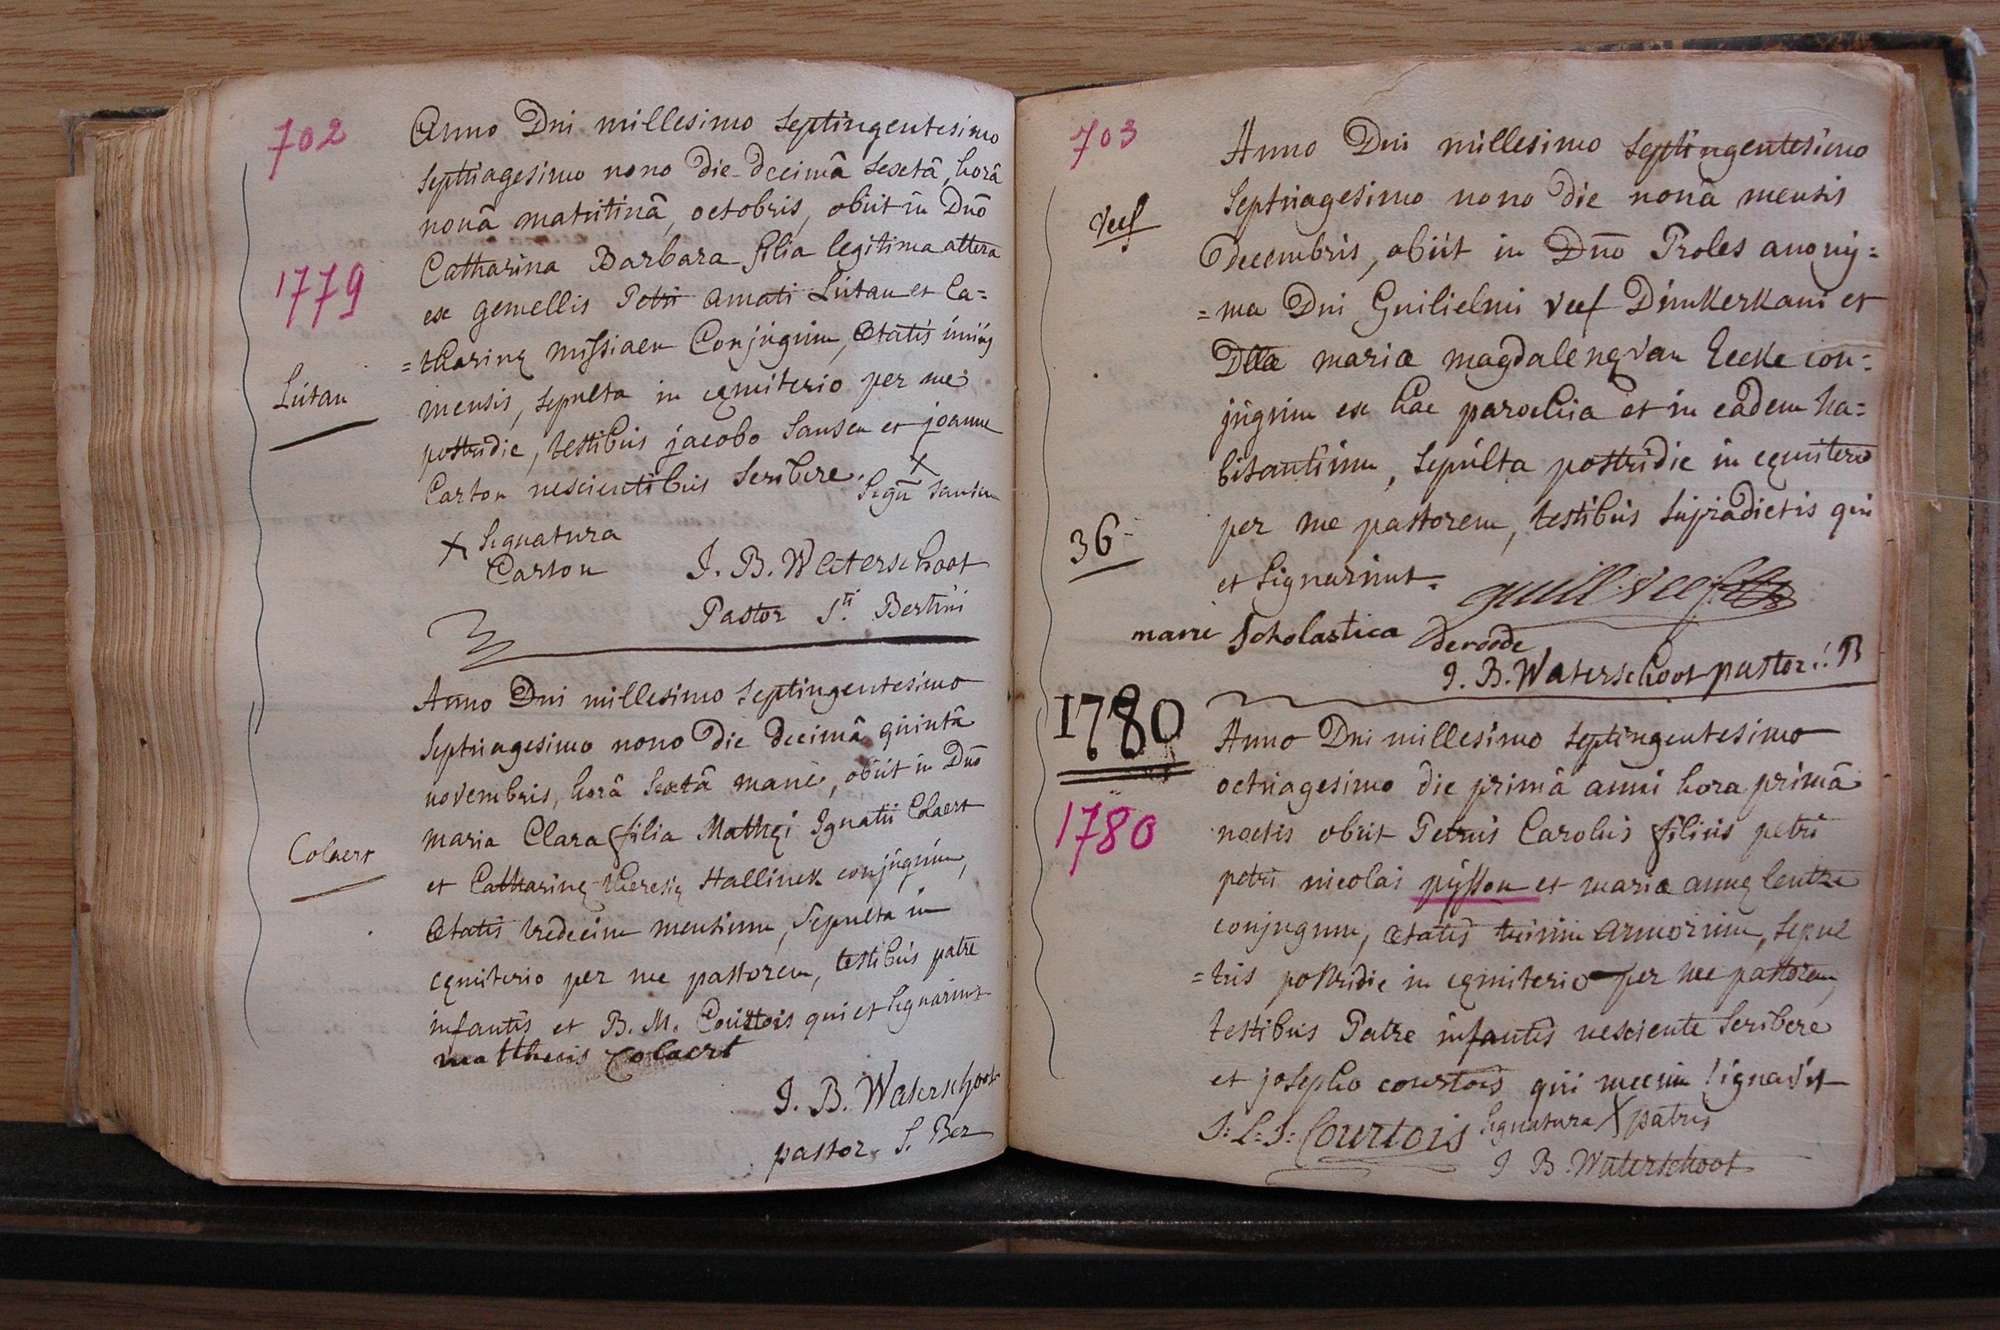 702
Anno Dni millesimo septingentesimo
septuagesimo nono die decimâ sextâ, horâ
nonâ matutinâ, octobris, obiit in Dnõ
Catharina Barbara filia legitima altera
1779
ex gemellis Petri amati Lutau et Ca=
=tharinę missiaen Conjugum, ætatis unius
Lutau
mensis, sepulta in cęmiterio per me
postridie, testibus jacobo Sansen et joanne
Carton nescientibus scribere.
X
Sign Sansen
X Signatura
Carton
J. B. Waterschoot
Pastor S.ti Bertini
Anno Dni millesimo septingentesimo
septuagesimo nono die decimâ quintâ
novembris, horâ sextâ mane, obiit in Dnõ
maria Clara filia Mathęi Ignatii Colaert
Colaert
et Catharinę theresię Hallinck conjugum,
ætatis tredecim mensium, sepulta in
cęmiterio per me pastorem, testibus patre
infantis et B. M. Courtois qui et signarunt
mattheus Colaert
J. B. Waterschoot
pastor S. Ber
703
Anno Dni millesimo septingentesimo
septuagesimo nono die nonâ mensis
Veef
Decembris, obiit in Dnõ Proles anony=
=ma Dni Guilielmi Veef Dunkerkani et
Dllæ mariæ magdalenę van Eecke con=
jugum ex hac parochia et in eâdem ha=
bitantium, sepulta postridie in cęmiterio
36
per me pastorem, testibus supradictis qui
et signarunt=
guill: veef
marie Scholastica deroode
J. B. Waterschoot pastor S: B
1780
Anno Dni millesimo septingentesimo
octuagesimo die primâ anni hora primâ
1780
noctis obiit Petrus Carolus filius petri
petri nicolai pÿsson et mariæ annę lentze
conjugum, ætatis trium annorum, sepul
=tus postridie in cęmiterio per me pastorem,
testibus Patre infantis nesciente scribere
et josepho courtois qui mecum signavit
J: L: J: Courtois Signatura X patris
J B Waterschoot